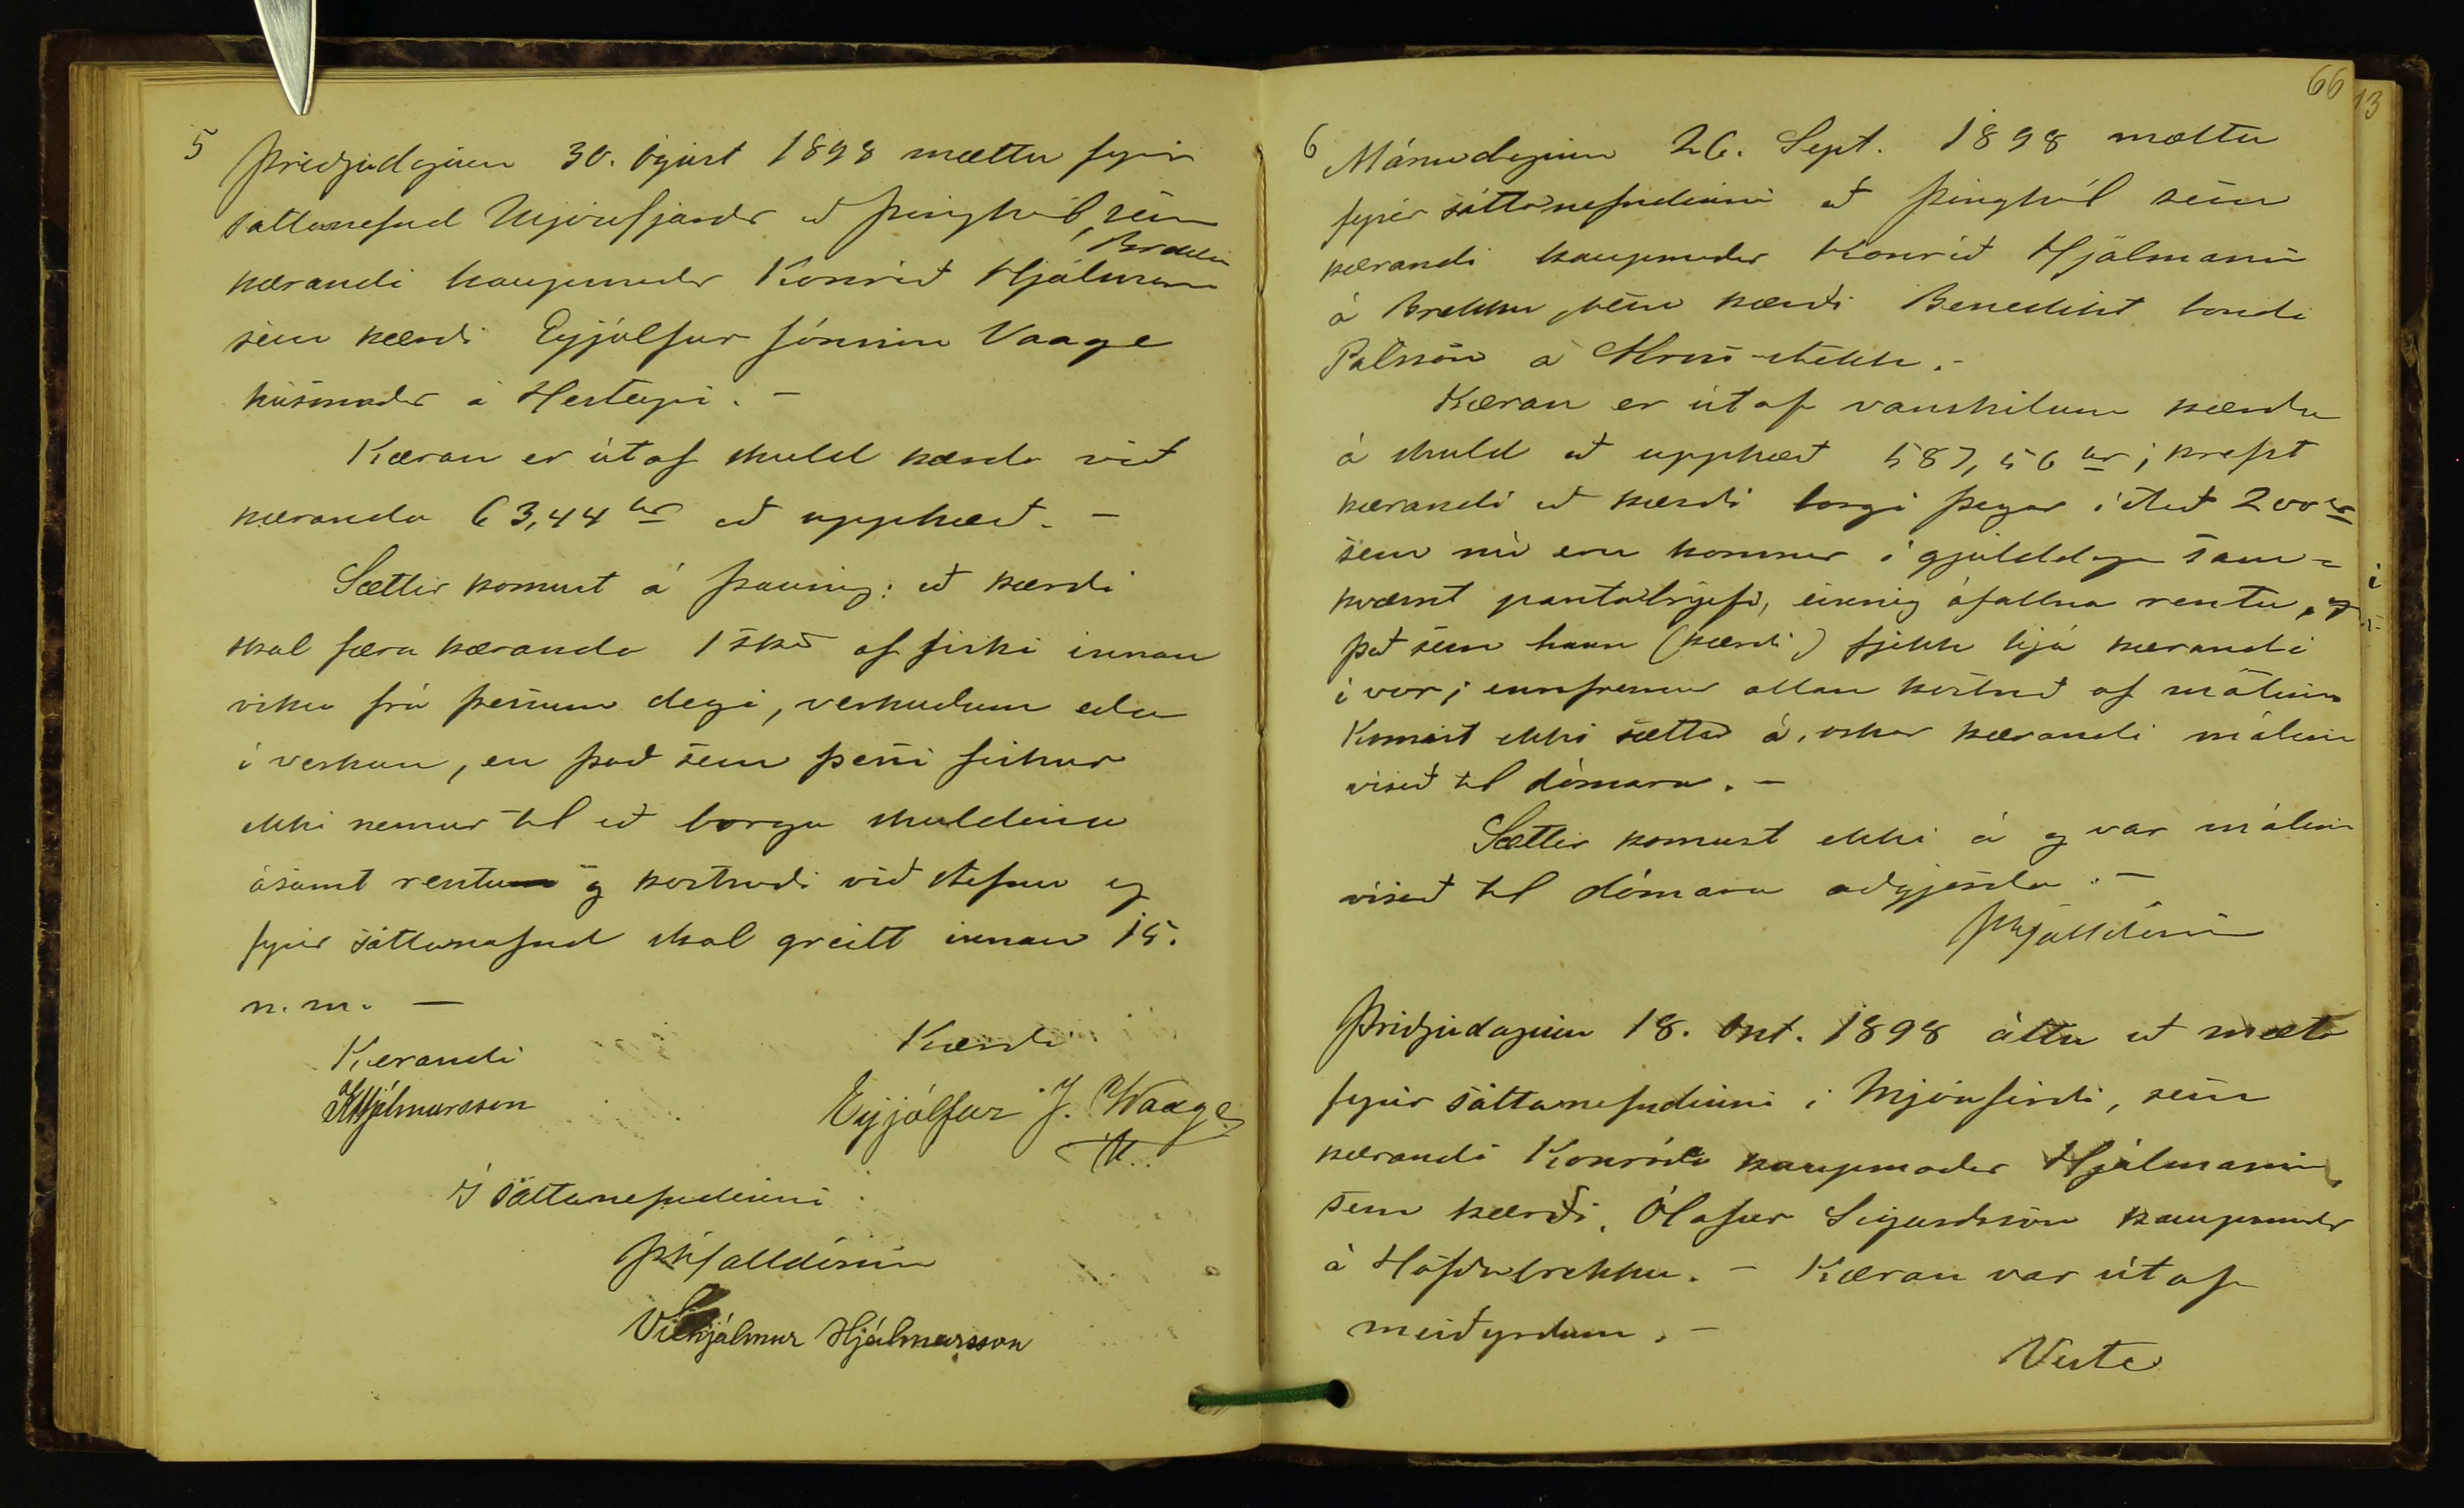 5 Þriðjudaginn 30. ágúst 1898 mættu fyrir
sáttanefnd Mjóafjarðar að Þinghól, sem
Brekku
kærandi kaupmaður Konráð Hjálmarsson
sem kærði Eyjólfur Jónsson Vaage
húsmaður á Hesteyri. –
Kæran er útaf skuld kærða við
kæranda 63,44 kr að upphæð. –
Sættir komust á þannig: að kærði
skal færa kæranda 1 skd af fiski innan
viku frá þessum degi, verkuðum eða
í verkun, en það sem þessi fiskur
ekki nemur til að borga skuldina
ásamt rentum og kostnaði við stefnu og
fyrir sáttanefnd skal greitt innan 15.
n.m. –
Kærandi Kærði
KHjálmarsson Eyjólfur J. Waage
Í sáttanefndinni
Vilhjálmur Hjálmarsson
66
13
6 Mánudaginn 26. Sept. 1898 mættu
fyrir sáttanefndinni að Þinghól sem
kærandi kaupmaður Konráð Hjálmarsson
á Brekku, sem kærði Benedikt bóndi
Pálsson á
Kæran er útaf vanskilum kærða
á skuld að upphæð 587,56 kr; krefst
kærandi að kærði borgi þegar í stað 200 kr
sem nú eru komnar í gjalddaga sam-
kvæmt pantsbrjefi, einnig áfallna rentu, og
það sem hann (kærði) fjekk hjá kæranda
í vor; ennfremur allan kostnað af málinu
Komist ekki sættir á, óskar kærandi málinu
vísað til dómara. –
Sættir komust ekki á og var málinu
vísað til dómara aðgjörða. –
Þriðjudaginn 18. Okt. 1898 áttu að mæta
fyrir sáttanefndinni í Mjóafirði, sem
kærandi Konráð kaupmaður Hjálmarsson,
sem kærði, Ólafur Sigurðsson kaupmaður
á Höfðabrekku. – Kæran var útaf
meiðyrðum. –
Verte